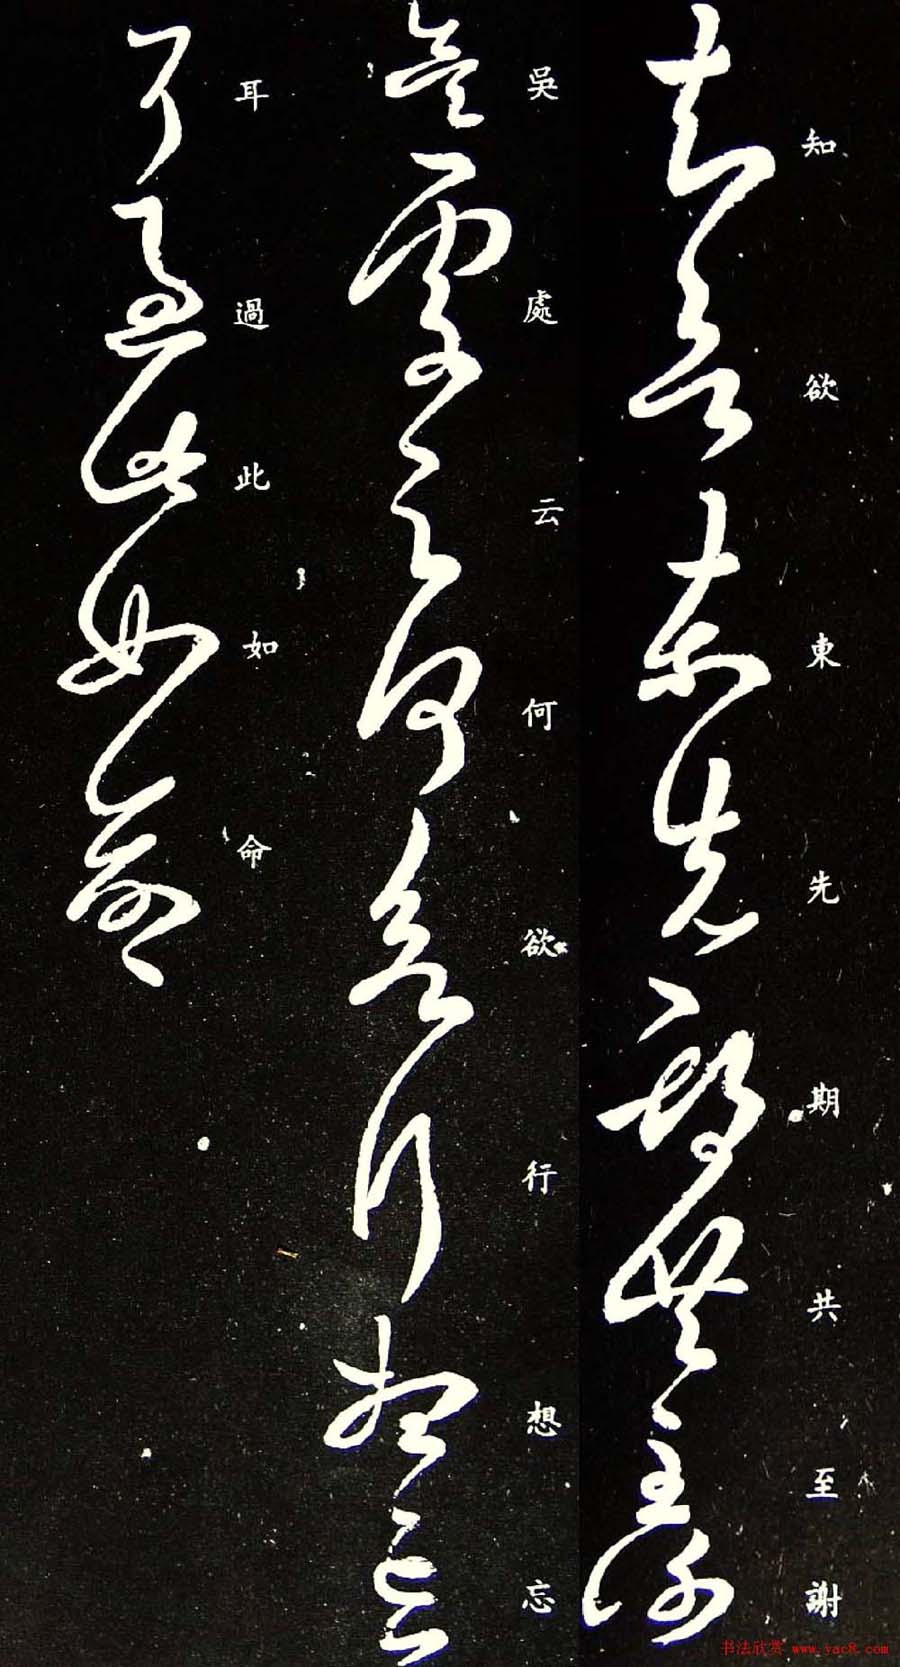 知欲東先期共至謝
吳處云何欲行想忘
耳過此如命
书法欣赏 www.yac8.com